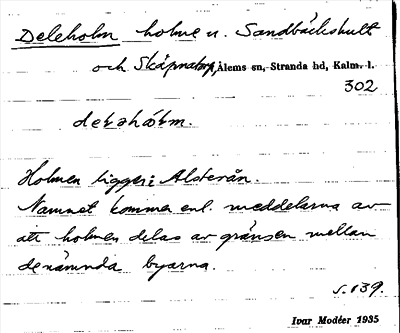 Deleholm holme u. Sandbäckshult
och Skäpnatorp, Ålems sn, Stranda hd, Kalm. l.
302
Holmen ligger i Alsterån.
Namnet kommer enl. meddelarna av
att holmen delas av gränsen mellan
de nämnda byarna.
S. 039.
Ivar Modéer 1935